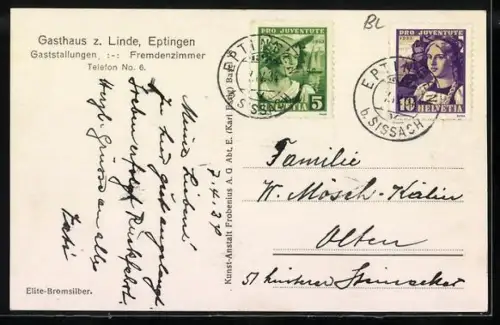 Gasthaus z. Linde, Eptingen
Gaststallungen :-: Fremdenzimmer
Telefon No. 6.
BL
PRO JUVENTUTE
HELVETIA 5
PRO JUVENTUTE
10 HELVETIA
EPTINGEN
b. SISSACH
Meine Lieben!
gut angelangt.
Rückfahrt.
Herzl. Grüsse an alle
Kunst-Anstalt Frobenius A. G. Abt. E. (Karl
Familie
W. Mösch-Kälin
Olten
51 hinterer Steinacker
Elite-Bromsilber.